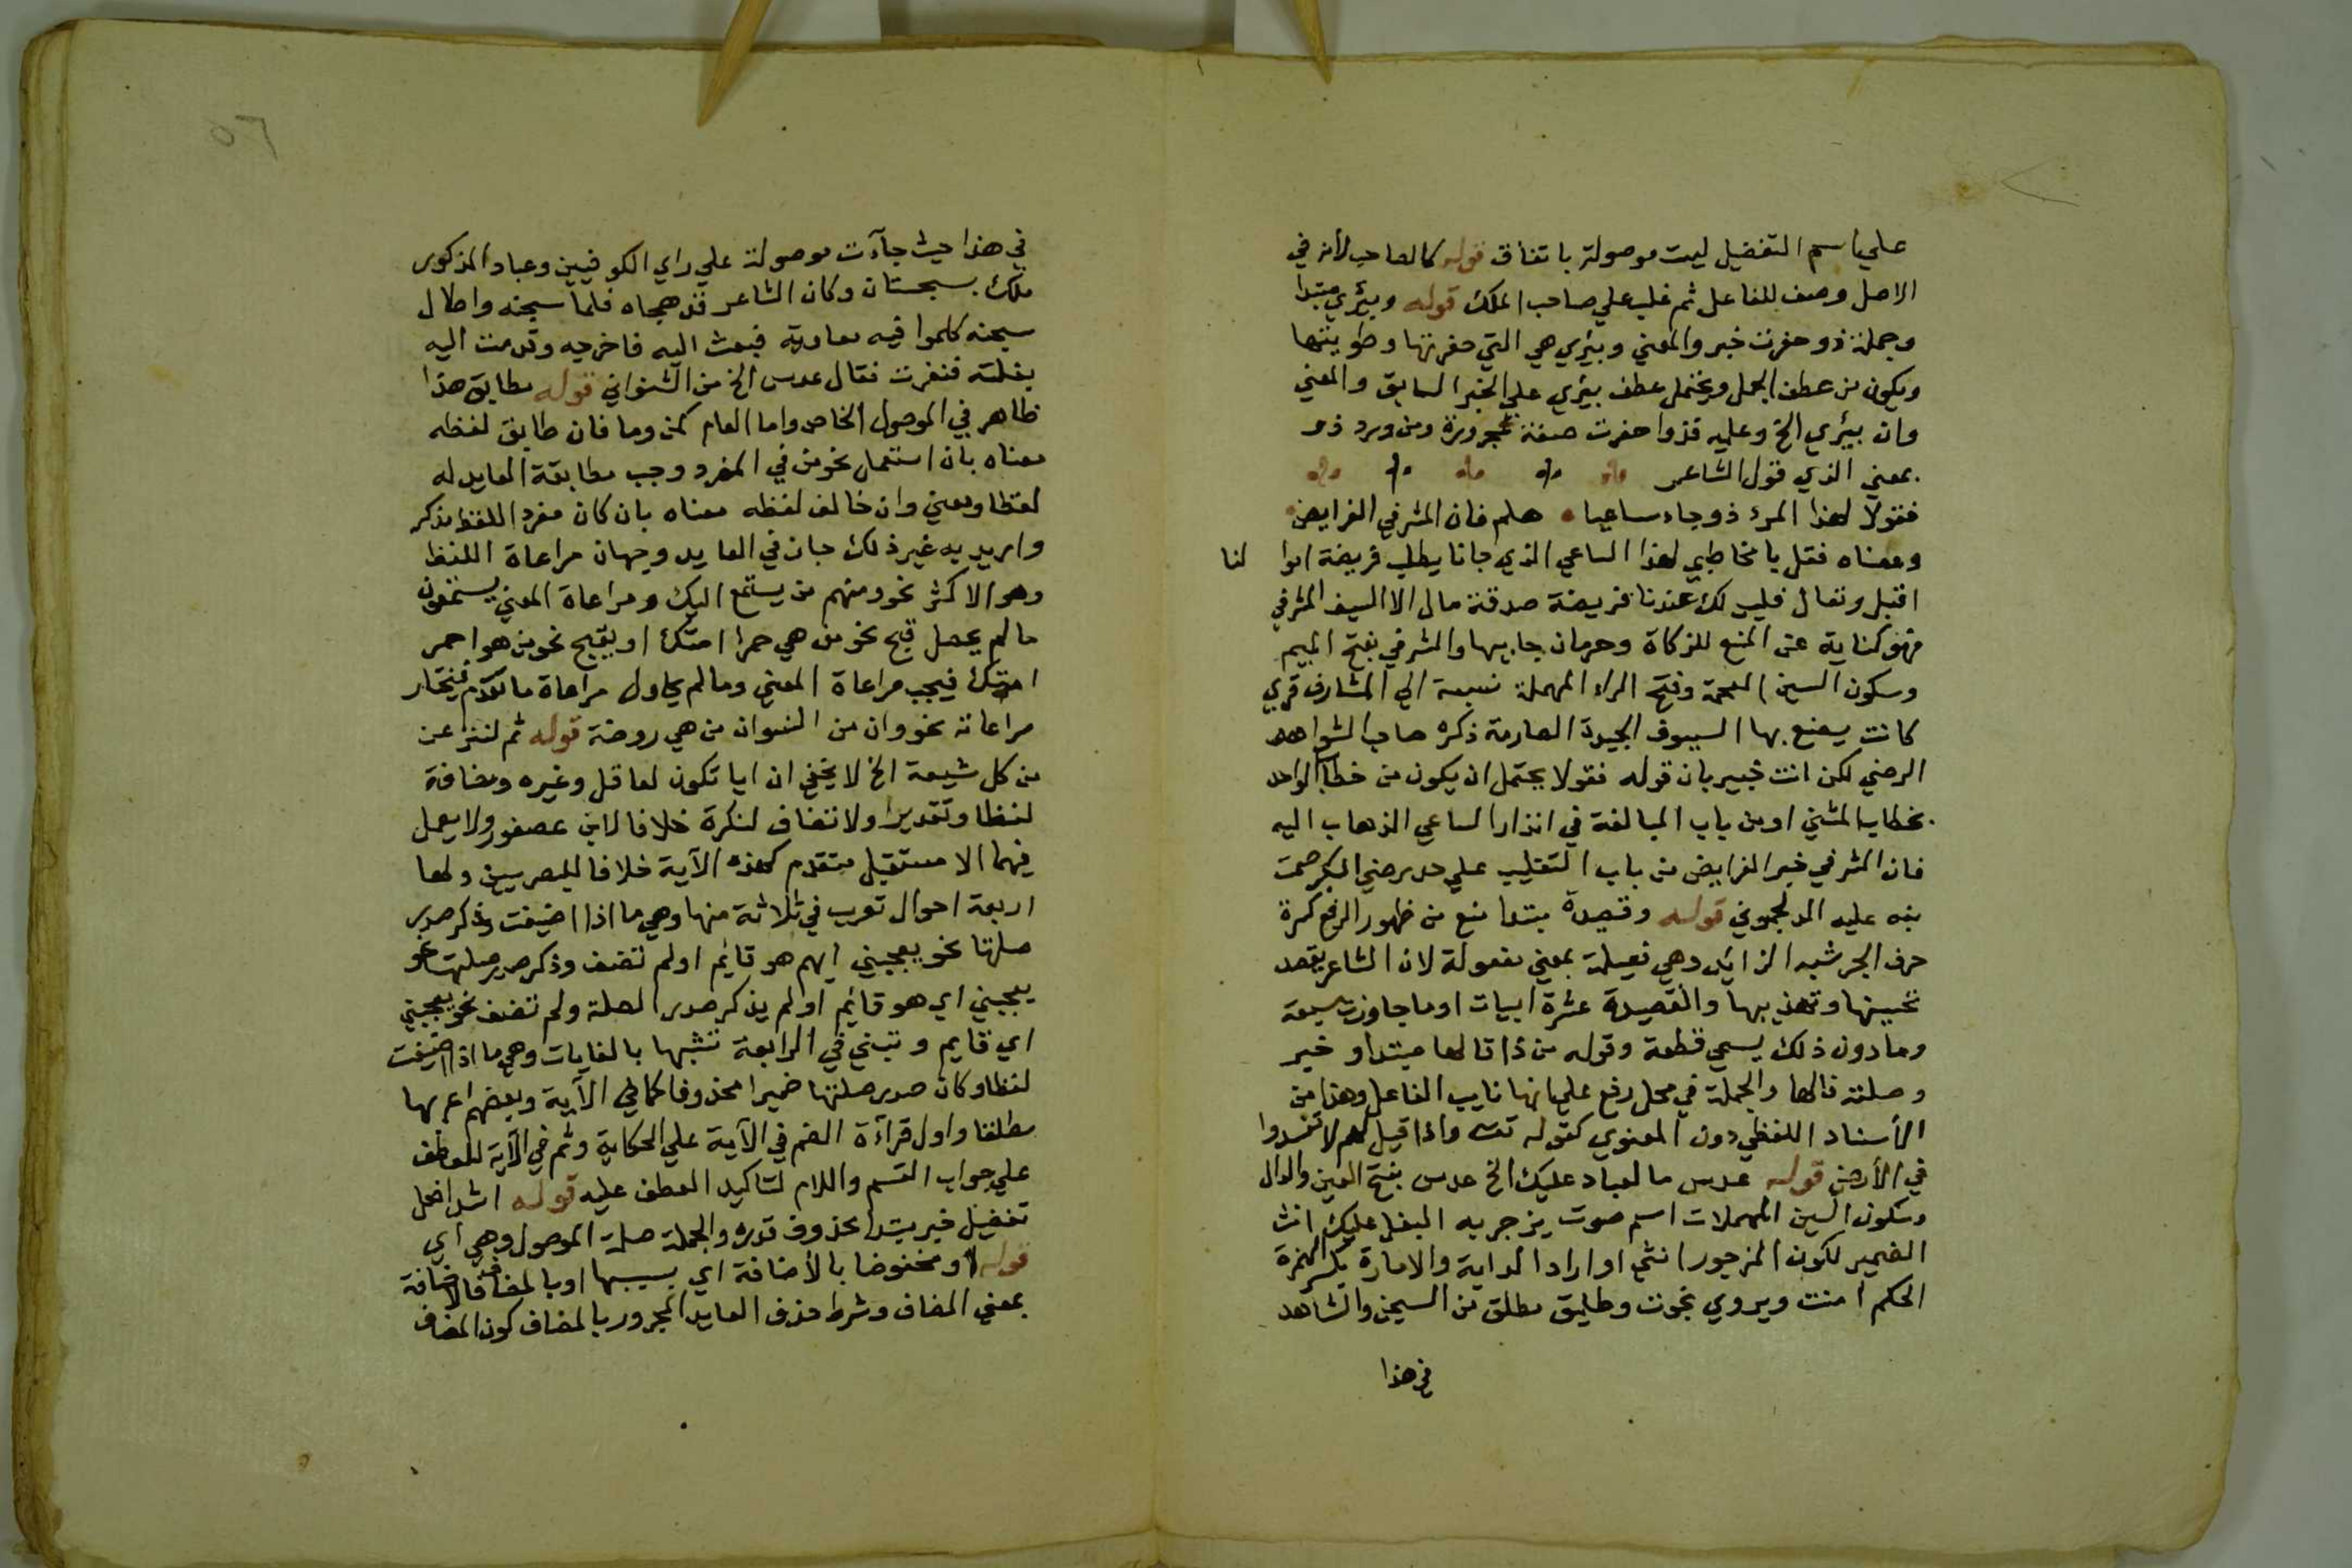 علي اسم التفضيل ليست موصولة باتفاق قوله كالصاحب لأنه في
الاصل وصف للفاعل ثم غلب علي صاحب الملك قوله وبيئري مبتدا
وجملة ذو حفرت خبر والمعني وبيئري هي التي حفرتها وطويتها
ويكون من عطف الجمل ويحتمل عطف بيئري علي الخبر السابق والمعني
وان بيئري الخ وعليه فذو حفرت صفة ومن ورد ذو
بمعني الذي قول الشاعر
فقولا لهذا المرء ذو جاء ساعيا هلم فان المشرفي الفرايض
ومعناه فقل يا مخاطبي لهذا الساعي الذي جانا يطلب فريضة ابوا لنا
اقبل وتعال فليس لك عندنا فريضة صدقة مال الا السيف المشرفي
فهو كناية عن المنع للزكاة وحرمان جابيها والمشرفي بفتح الميم
وسكون السين المعجمة وفتح الراء المهملة نسبة الي المشارف قري
كانت يصنع بها السيوف الجيدة الصارمة ذكره صاحب الشواهد
الرضي لكن انت خبير بان قوله فقولا يحتمل ان يكون من خطاب الواحد
بخطاب المثني او من باب المبالغة في انذار الساعي الذهاب اليه
فان المشرفي خير الفرايض من باب التغليب علي حد رضي البكر صمت
نبه عليه الدلجموني قوله وقصيدة مبتدا منع من ظهور الرفع كسرة
حرف الجر شبه الزائد وهي فعيلة بمعني مفعولة لان الشاعر يقصد
تحسينها وتهذيبها والقصيدة عشرة ابيات او ما جاوزت سبعة
وما دون ذلك يسمي قطعة وقوله من ذا قالها مبتدا وخبر
وصلته قالها والجملة في محل رفع علي انها نايب الفاعل وهذا من
الأسناد اللفظي دون المعنوي كقوله تعـ واذا قيل لهم لا تفسدوا
في الأرض قوله عدس ما لعباد عليك الخ عدس بفتح العين والدال
وسكون السين المهملات اسم صوت يزجر به البغل عليك انث
الضمير لكون المزجور انثي او اراد الدابة والامارة بكسر الهمزة
الحكم امنت ويروي نجوت وطليق مطلق من السجن والشاهد
في هذا
٥٦
في هذا حيث جآءت موصولة علي راي الكوفيين وعباد المذكور
ملك بسجستان وكان الشاعر قد هجاه فلما سجنه واطال
سجنه كلموا فيه معاوية فبعث اليه فاخرجه وقدمت اليه
بغلته فنفرت فقال عدس الخ من الشنواني قوله مطابق هذا
ظاهر في الموصول الخاص واما العام كمن وما فان طابق لفظه
معناه بان استعمل نحو من في المفرد وجب مطابقة العايد له
لفظا ومعني وان خالف لفظه معناه بان كان مفرد اللفظ مذكر
واريد به غير ذلك جاز في العايد وجهان مراعاة اللفظ
وهو الاكثر نحو ومنهم من يستمع اليك ومراعاة المعني يستمعون
ما لم يحصل قبح نحو من هي حمرا امتك او يقبح نحو من هو احمر
امتك فيجب مراعاة المعني وما لم يحاول مراعاة ما تقدم فيختار
مراعاته نحو وان من النسوان من هي روضة قوله ثم لننزعن
من كل شيعة الخ لا يخفي ان ايا تكون لعاقل وغيره ومضافة
لفظا وتقديرا ولا تضاف لنكرة خلافا لابن عصفور ولا يعمل
فيها الا مستقبل متقدم كهذه الآية خلافا للبصريين ولها
اربعة احوال تعرب في ثلاثة منها وهي ما اذا اضيفت وذكر صدر
صلتها نحو يعجبني ايهم هو قائم او لم تضف وذكر صدر صلتها نحو
يعجبني اي هو قائم او لم يذكر صدر الصلة ولم تضف نحو يعجبني
اي قايم وتبني في الرابعة تشبها بالغايات وهي ما اذا اضيفت
لفظا وكان صدر صلتها ضميرا محذوفا كما في الآية وبعضهم اعربها
مطلقا واول قرآءة الضم في الآية علي الحكاية وثم في الآية للعطف
علي جواب القسم واللام لتاكيد العطف عليه قوله اشد افعل
تفضيل خبر مبتدا محذوف قدره والجملة صلة الموصول وهي اي
قوله او مخفوضا بالأضافة اي بسببها او بالمضاف فالاضافة
بمعني المضاف وشرط حذف العايد المجرور بالمضاف كون المضاف